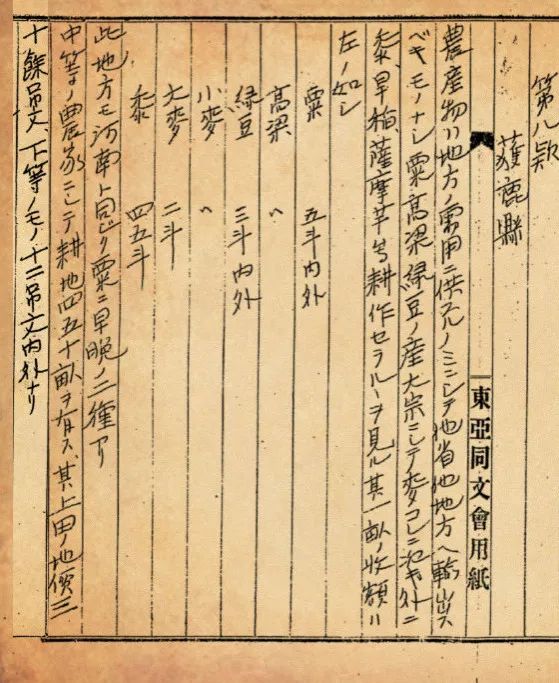 第八款
獲鹿縣
農産物ハ地方ノ需用ニ供充ノミニシテ他省他地方ヘ輸出ス
ベキモノナシ粟高梁緑豆ノ産大宗ニシテ麥コレニ次キ外ニ
黍、旱稲、薩摩芋等耕作セラルヽヲ見ル其一畝ノ收額ハ
左ノ如シ
粟 五斗内外
高梁 〃
緑豆 三斗内外
小麥 〃
大麥 二斗
黍 四五斗
此地方モ河南ト同ジク粟ニ早晩ノ二種アリ
中等ノ農家ニシテ耕地四五十畝ヲ有ス、其上田ノ地價三
十餘吊文、下等ノモノ十二吊文内外ナリ
東亞同文會用紙